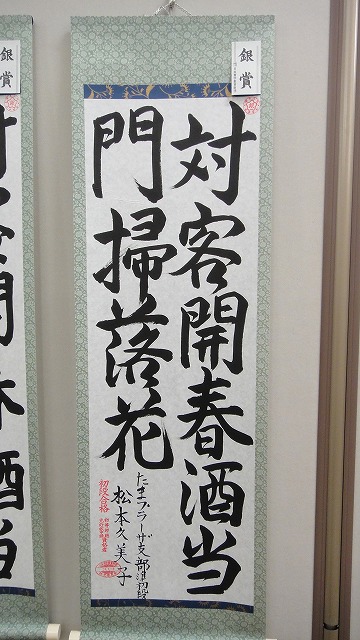 銀賞
対客開春酒当
門掃落花
たまプラーザ支部準初段
松本久美子
初段合格
銀賞